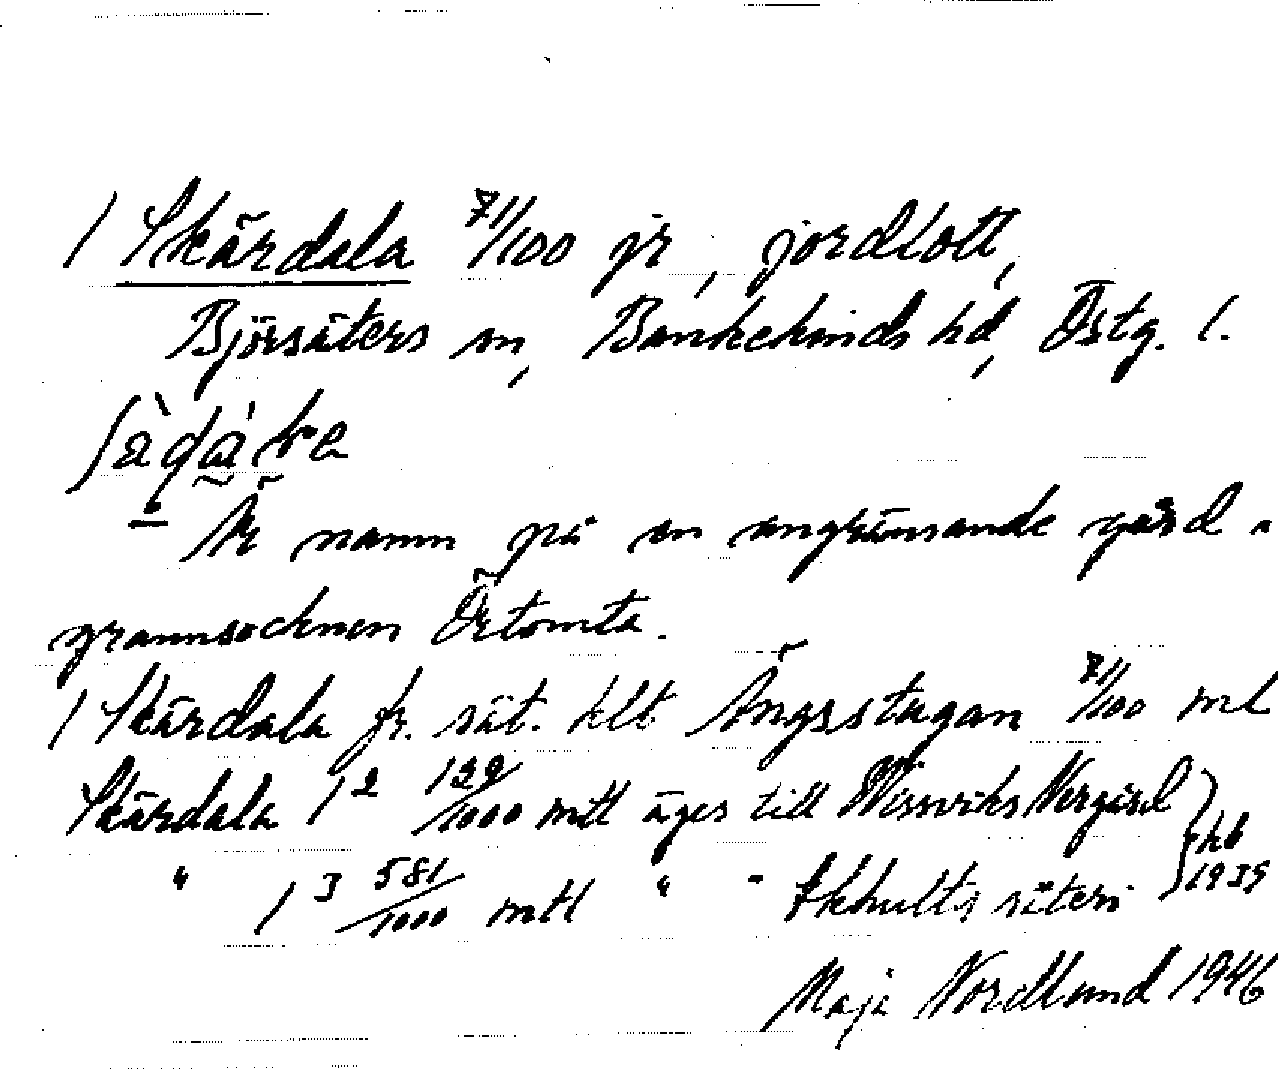 1 Skärdala 71/100 jr, jordlott,
Björsäters sn, Bankekinds hd, Östg. l.
Är namn på en angränsande gård i
grannsocknen Örtomta.
1 Skärdala fr. sät. klt Ängsstugan 71/100 mtl
Skärdala 1² 122/1000 mtl äges till Wissviks Norrgård } jkb
" 1³ 581/1000 mtl " - Ekhults säteri } 1939
Maja Nordlund 1946